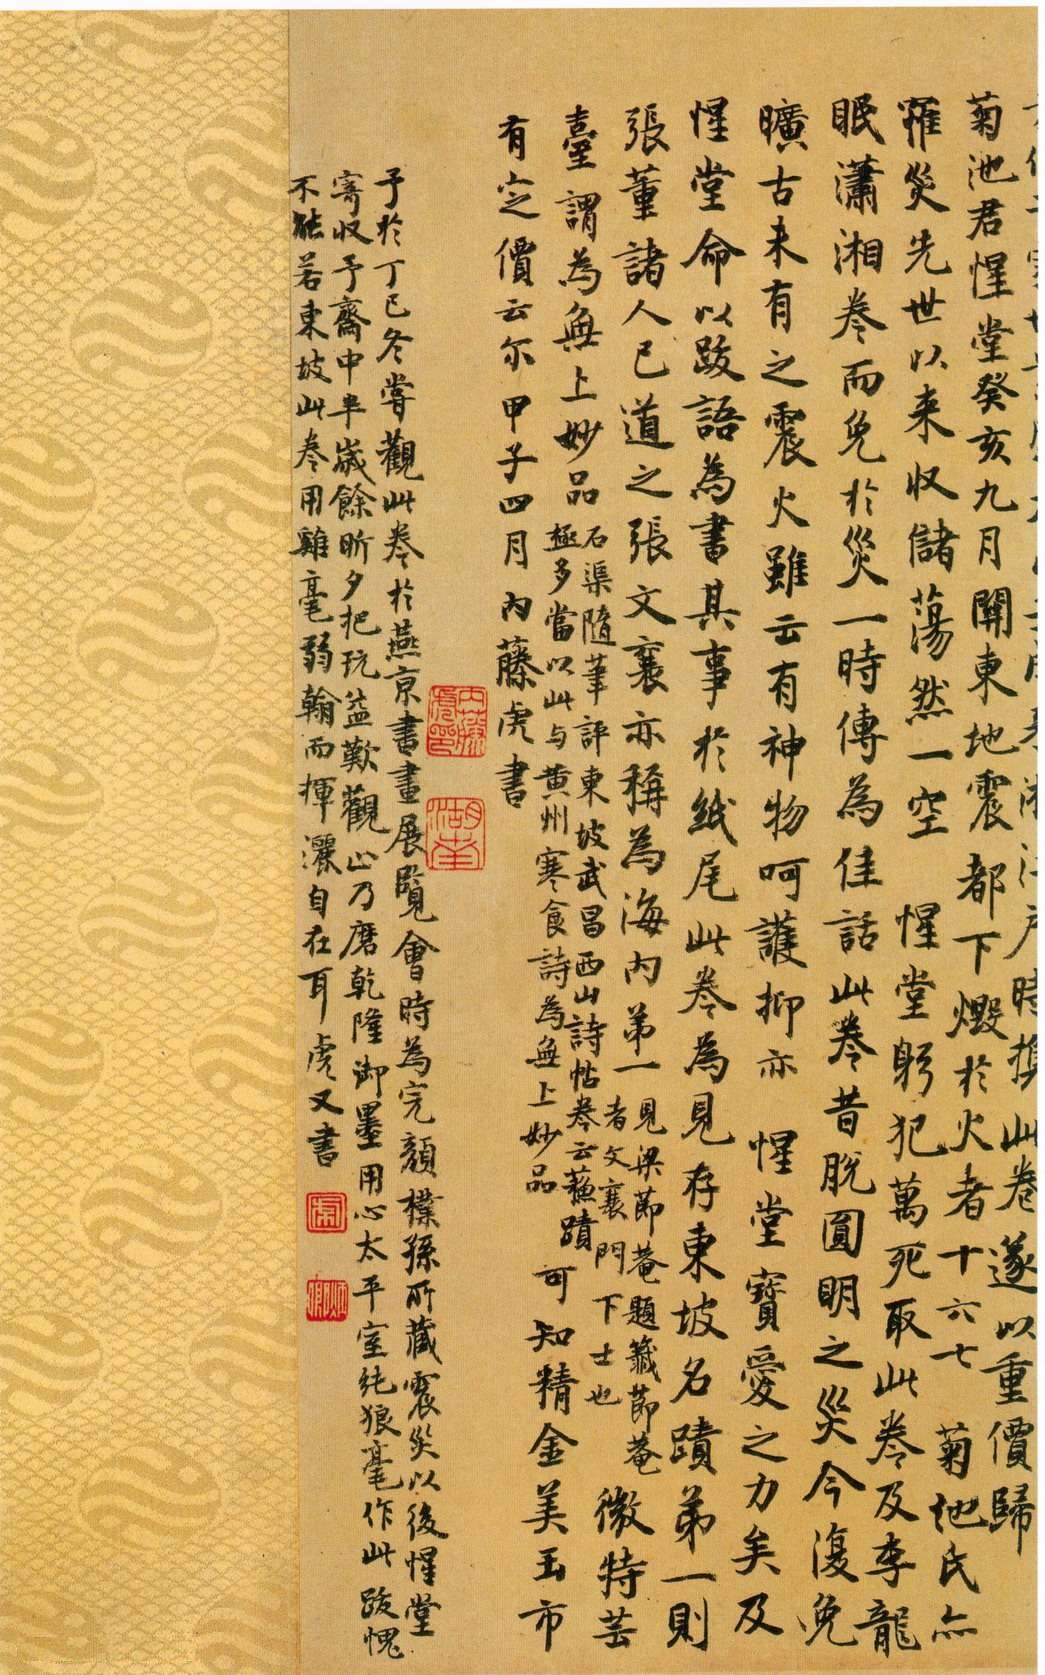 時攜此卷遂以重價歸
菊池君惺堂癸亥九月關東地震都下燬於火者十六七菊池氏亦
罹災先世以来收儲蕩然一空惺堂躬犯萬死取此卷及李龍
眠瀟湘卷而免於災一時傳為佳話此卷昔脫圓明之災今復免
曠古未有之震火雖云有神物呵護抑亦惺堂寶愛之力矣及
惺堂命以跋語為書其事於紙尾此卷為見存東坡名蹟第一則
張董諸人已道之張文襄亦稱為海內第一
見梁節菴題籤節菴
者文襄門下士也
微特芸
臺謂為無上妙品
石渠隨筆評東坡武昌西山詩帖卷云蘇蹟
極多當以此与黃州寒食詩為無上妙品
可知精金美玉市
有定價云尔甲子四月內藤虎書
內藤虎印
湖南
予於丁巳冬嘗觀此卷於燕京書畫展覽會時為完顏樸孫所藏震災以後惺堂
寄收予齋中半歲餘昕夕把玩益歎觀止乃磨乾隆御墨用心太平室純狼毫作此跋愧
不能若東坡此卷用雞毫弱翰而揮灑自在耳虎又書
虎